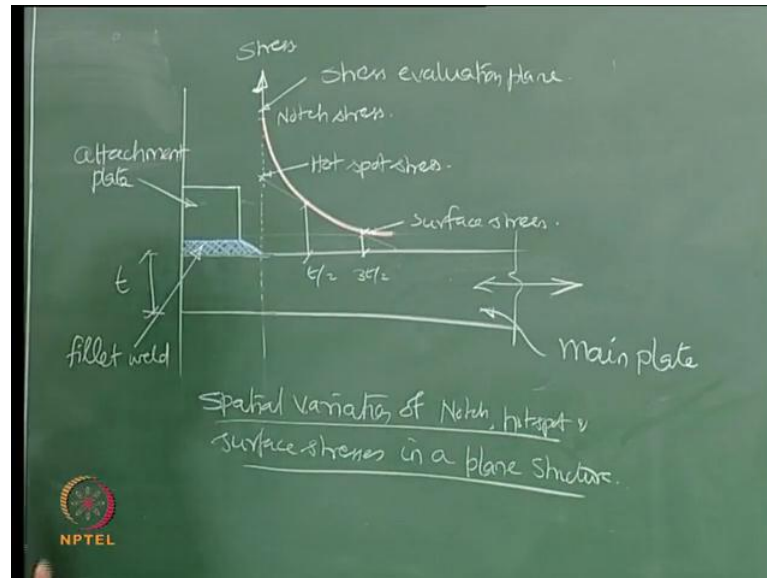 Stress
Stress evaluation plane.
Notch stress.
attachment
plate
Hot spot stress.
Surface stress.
t/2
3t/2
t
fillet weld
Main plate
Spatial variation of Notch, hotspot &
surface stresses in a plane structure.
NPTEL